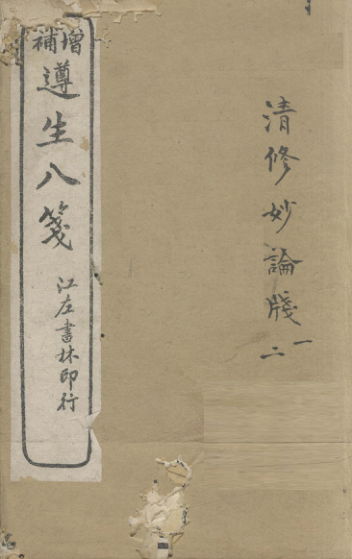 清修妙論牋
一
二
增補
遵生八箋
江左書林印行